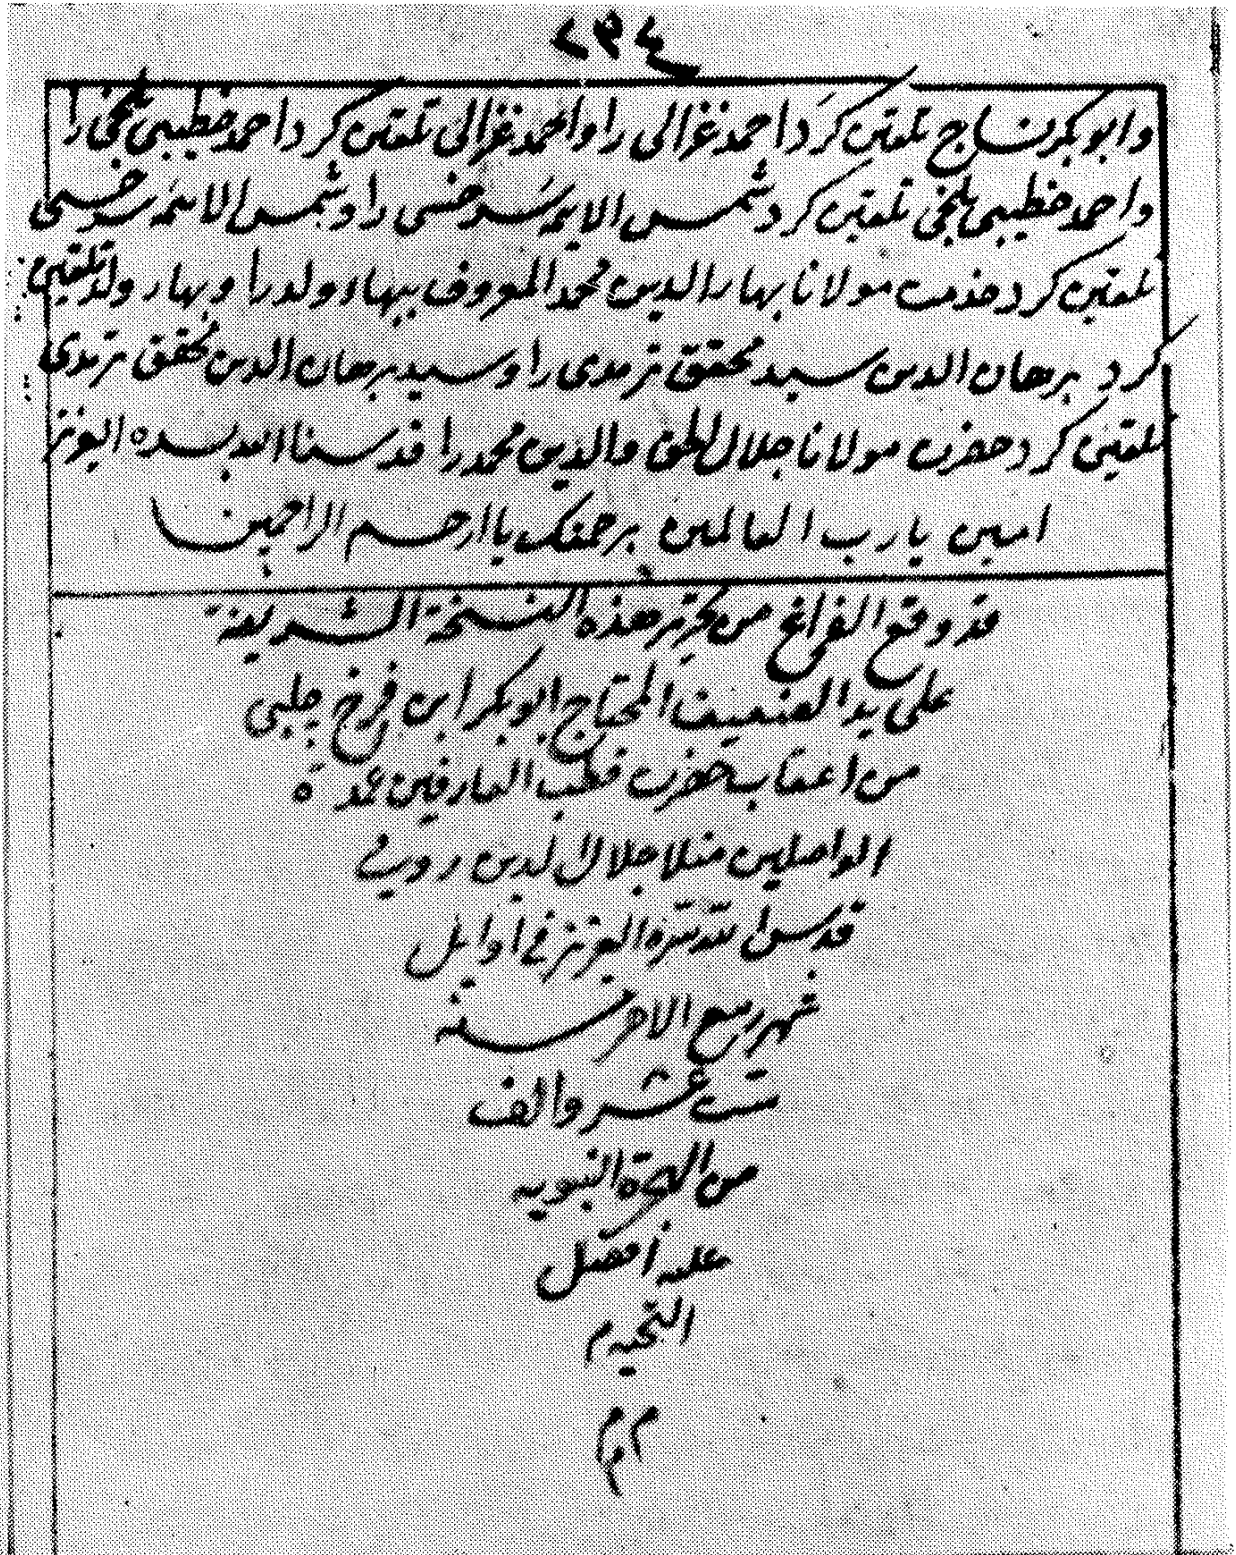 ٢٣٤
وابوبكر نساج تلقين كرد احمد غزالى را واحمد غزالى تلقين كرد احمد خطيبى بلخى را
واحمد خطيبى بلخى تلقين كرد شمس الايمه سرخسى را وشمس الايمه سرخسى
تلقين كرد خدمت مولانا بهاء الدين محمد المعروف ببهاء ولد را وبهاء ولد تلقين
كرد برهان الدين سيد محقق ترمدى را وسيد برهان الدين محقق ترمدى
تلقين كرد حضرت مولانا جلال الحق والدين محمد را قدسنا الله بسره العزيز
امين يارب العالمين برحمتك يا ارحم الراحمين
قد وقع الفراغ من تحرير هذه النسخة الشريفة
على يد الضعيف المحتاج ابوبكر ابن فرخ چلبى
من اعقاب حضرت قطب العارفين عمدة
الواصلين منلا جلال لدين رومى
قدس الله سره العزيز فى اوايل
شهر ربيع الاخر سنه
ست عشر والف
من الهجرة النبويه
عليه افضل
التحيه م
م م
م